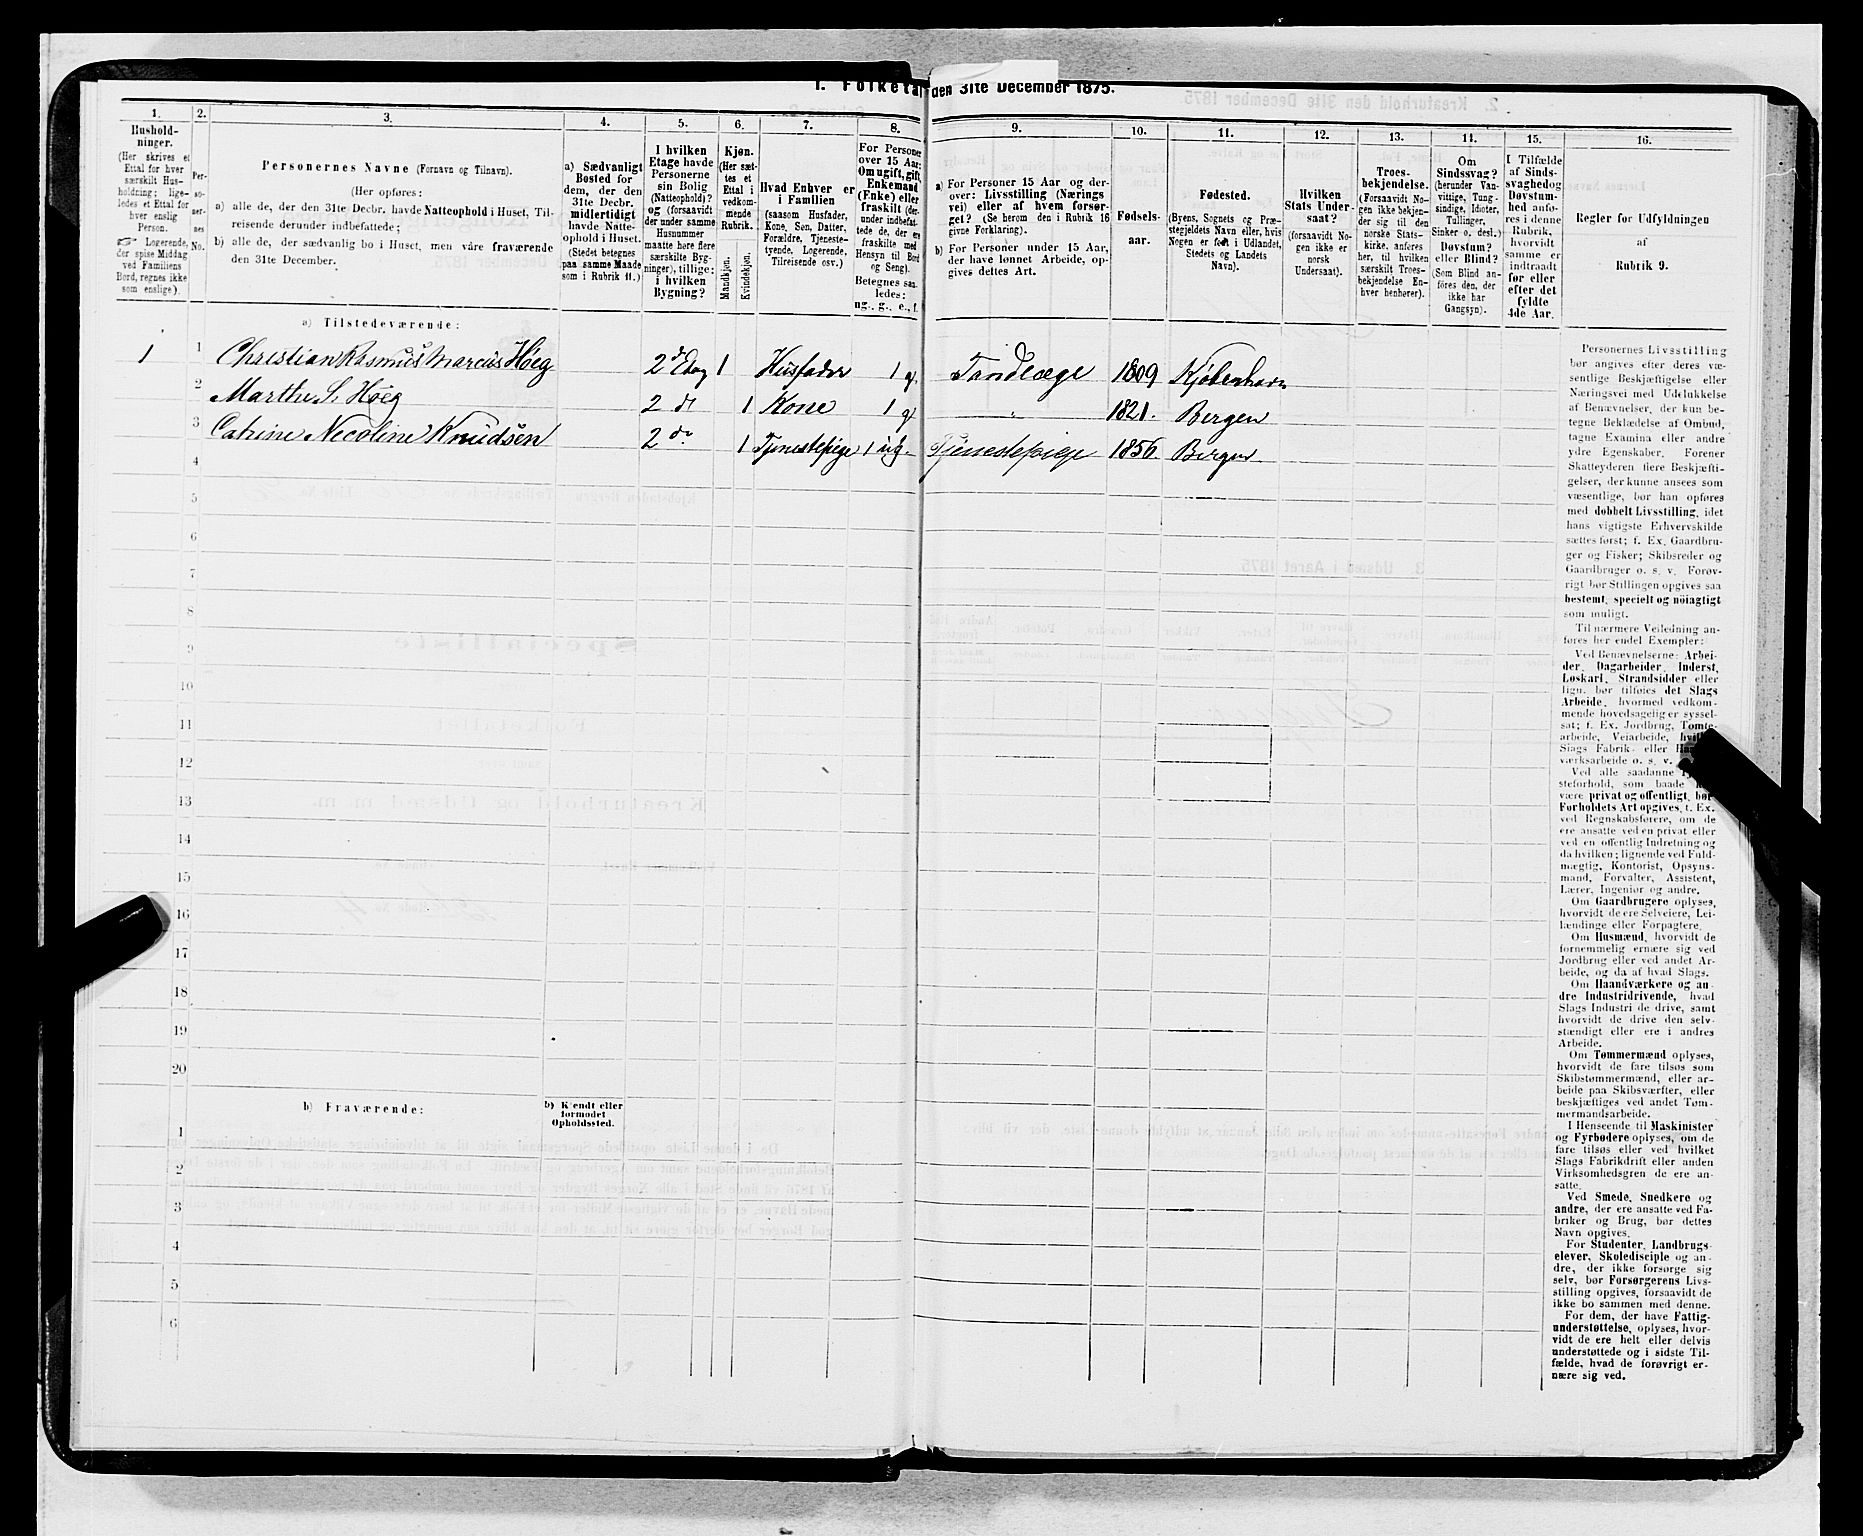 1. Folketal den 31te December 1875.
1. 2. 3. 4. 5. 6. 7. 8. 9. 10. 11. 12. 13. 14. 15. 16.
Hushold-
ninger.
(Her skrives et
Ettal for hver
særskilt Hus-
holdning; lige-
ledes et Ettal for
hver enslig
Person.
☞ Logerende,
der spise Middag
ved Familiens
Bord, regnes ikke
som enslige).
Per-
so-
ner-
nes
No.
Personernes Navne (Fornavn og Tilnavn).
(Her opføres:
a) alle de, der den 31te Decbr. havde Natteophold i Huset, Til-
reisende derunder indbefattede;
b) alle de, der sædvanlig bo i Huset, men våre fraværende
den 31te December.
a) Sædvanligt
Bosted for
dem, der den
31te Decbr.
midlertidigt
havde Natte-
ophold i Huset.
(Stedet betegnes
paa samme Maade
som i Rubrik 11.)
I hvilken
Etage havde
Personerne
sin Bolig
(Natteophold)?
og (forsaavidt
der under samme
Husnummer
maatte høre flere
særskilte Byg-
ninger), tillige:
i hvilken
Bygning?
Kjøn.
(Her sæt-
tes et
Ettal i
vedkom-
mende
Rubrik.
Mandkjøn.
Kvindekjøn.
Hvad Enhver er
i Familien
(saasom Husfader,
Kone, Søn, Datter,
Forældre, Tjeneste-
tyende, Logerende,
Tilreisende osv.)
For Personer
over 15 Aar:
Om ugift, gift,
Enkemand
(Enke) eller
fraskilt (der-
under indbefat-
tede de, der ere
fraskilte med
Hensyn til Bord
og Seng).
Betegnes saa-
ledes:
ug., g., e., f.
a) For Personer 15 Aar og der-
over: Livsstilling (Nærings
vei) eller af hvem forsør-
get? (Se herom den i Rubrik 16
givne Forklaring).
b) For Personer under 15 Aar,
der have lønnet Arbeide, op-
gives dettes Art.
Fødsels-
aar.
Fødested.
(Byens, Sognets og Præ-
stegjeldets Navn eller, hvis
Nogen er født i Udlandet,
Stedets og Landets
Navn).
Hvilken
Stats Under-
saat?
(forsaavidt No-
gen ikke er
norsk
Undersaat).
Troes-
bekjendelse.
(Forsaavidt No-
gen ikke bekjen-
der sig til den
norske Stats-
kirke, anføres
her, til hvilken
særskilt Troes-
bekjendelse En-
hver henhører).
Om
Sindssvag?
(herunder Van-
vittige, Tung-
sindige, Idioter,
Tullinger,
Sinker o. desl.)
Døvstum?
eller Blind?
(Som Blind an-
føres den, der
ikke har
Gangsyn).
I Tilfælde
af Sinds-
svaghed og
Døvstum-
hed anfø-
res i denne
Rubrik,
hvorvidt
samme er
indtraadt
før eller
efter det
fyldte
4de Aar.
Regler for Udfyldningen
af
Rubrik 9.
a) Tilstedeværende:
1 1 Christian Rasmus Marcus Høeg 2d Etag 1 Husfader 1 g. Tandlæge 1809 Kjøbenhavn
2 Marthe S. Høeg 2 do 1 Kone 1 g " 1821. Bergen
3 Catrine Necoline Knudsen 2 do 1 Tjenestepige 1 ug. Tjenestepige 1856. Bergen
4
5
6
7
8
9
10
11
12
13
14
15
16
17
18
19
20
b) Fraværende:
b) Kjendt eller
formodet
Opholdssted.
1
2
3
4
5
6
Personernes Livsstilling
bør angives efter deres væ-
sentlige Beskjæftigelse eller
Næringsvei med Udelukkelse
af Benævnelser, der kun be-
tegne Beklædelse af Ombud,
tagne Examina eller andre
ydre Egenskaber. Forener
Skatteyderen flere Beskjæfti-
gelser, der kunne ansees som
væsentlige, bør han opføres
med dobbelt Livsstilling, idet
hans vigtigste Erhvervskilde
sættes først; f. Ex. Gaardbru-
ger og Fisker; Skibsreder og
Gaardbruger o. s. v. Forøv-
rigt bør Stillingen opgives saa
bestemt, specielt og nøiagtigt
som muligt.
Til nærmere Veiledning an-
føres her endel Exempler:
Ved Benævnelserne: Arbei-
der, Dagarbeider, Inderst,
Løskarl, Strandsidder eller
lign. bør tilføies det Slags
Arbeide, hvormed vedkom-
mende hovedsagelig er syssel-
sat; f. Ex. Jordbrug, Tomte-
arbeide, Veiarbeide,
Slags Fabrik- eller
værksarbeide o. s. v.
Ved alle saadanne
steforhold, som baade
være privat og offentligt, bør
Forholdets Art opgives, f. Ex.
ved Regnskabsførere, om de
ere ansatte ved en privat eller
ved en offentlig Indretning og
da hvilken; lignende ved Fuld-
mægtig, Kontorist, Opsyns-
mand, Forvalter, Assistent,
Lærer, Ingeniør og andre.
Om Gaardbrugere oplyses,
hvorvidt de ere Selveiere, Lei-
lændinge eller Forpagtere.
Om Husmænd, hvorvidt de
fornemmelig ernære sig ved
Jordbrug eller ved andet Ar-
beide, og da af hvad Slags.
Om Haandværkere og an-
dre Industridrivende, hvad
Slags Industri de drive, samt
hvorvidt de drive den selv-
stændigt eller ere i andres
Arbeide.
Om Tømmermænd oplyses,
hvorvidt de fare tilsøs som
Skibstømmermænd, eller ar-
beide paa Skibsværfter, eller
beskjæftiges ved andet Tøm-
mermandsarbeide.
I Henseende til Maskinister
og Fyrbødere oplyses, om de
fare tilsøs eller ved hvilket
Slags Fabrikdrift eller anden
Virksomhedsgren de ere an-
satte.
Ved Smede, Snedkere og
andre, der ere ansatte ved Fa-
briker og Brug, bør dettes
Navn opgives.
For Studenter, Landbrugs-
elever, Skoledisciple og an-
dre, der ikke forsørge sig
selv, bør Forsørgerens Livs-
stilling opgives, forsaavidt de
ikke bo sammen med denne.
For dem, der have Fattig-
understøttelse, oplyses, hvor-
vidt de ere helt eller delvis
understøttede og i sidste Til-
fælde, hvad de forøvrigt er-
nære sig ved.